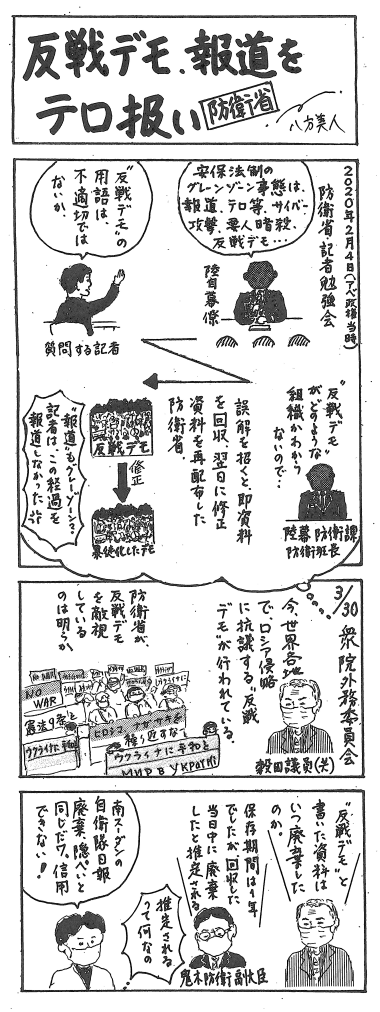 反戦デモ、報道を
テロ扱い
防衛省
八方美人
2020年2月4日(アベ政権当時)
防衛省記者勉強会
安保法制の
グレーゾーン事態は、
報道、テロ等、サイバー
攻撃、要人暗殺、
反戦デモ…
陸自幕僚
"反戦デモ"の
用語は、
不適切では
ないか、
質問する記者
"反戦デモ"
がどのような
組織かわから
ないので…
陸幕防衛課
防衛班長
誤解を招くと、即資料
を回収、翌日に修正
資料を再配布した
防衛省、
反戦デモ
修正
暴徒化したデモ
"報道"もグレーゾーン?
記者は、この経過を
報道しなかった
3/30
衆院外務委員会
今、世界各地
で、ロシア侵略
に抗議する"反戦
デモ"が行われている、
穀田議員(共)
防衛省が、
反戦デモ
を敵視
している
のは明らか、
NO WAR
NO
WAR
憲法9条を
ウクライナに平和
ヒロシマ・ナガサキを
繰り返すな
ウクライナに平和を
"反戦デモ"と
書いた資料は
いつ廃棄した
のか、
保存期間は1年
でしたが回収した
当日中に廃棄
したと推定される
鬼木防衛副大臣
推定される
って何なの
南スーダンの
自衛隊日報
廃棄、隠ぺいと
同じだワ、信用
できない!